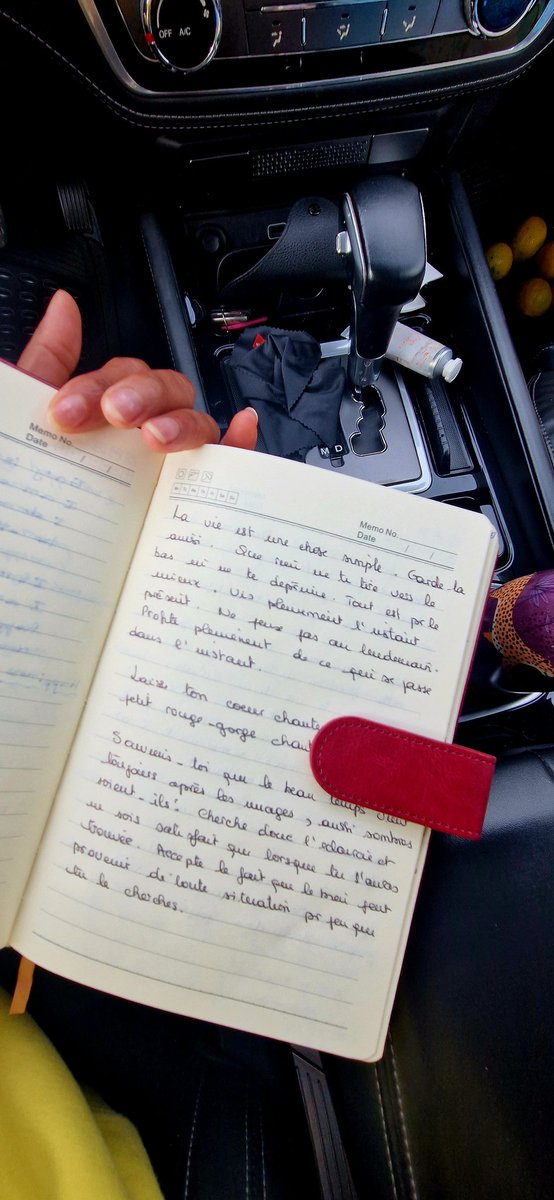 OFF A/C
M D
Memo No.
Date / /
Memo No.
Date / /
Mo Tu We Th Fr Sa Su
La vie est une chose simple. Garde la
ainsi. Que rien ne te tire vers le
bas ni ne te déprime. Tout est pr le
mieux. Vis pleinement l'instant
présent. Ne pense pas au lendemain.
Profite pleinement de ce qui se passe
dans l'instant.
Laisse ton coeur chante
petit rouge-gorge chant
Souviens-toi que le beau temps
toujours après les nuages, aussi sombres
soient-ils! Cherche donc l'éclaircie et
ne sois satisfait que lorsque tu l'auras
trouvée. Accepte le fait que le bien peut
provenir de toute situation pr peu que
tu le cherches.